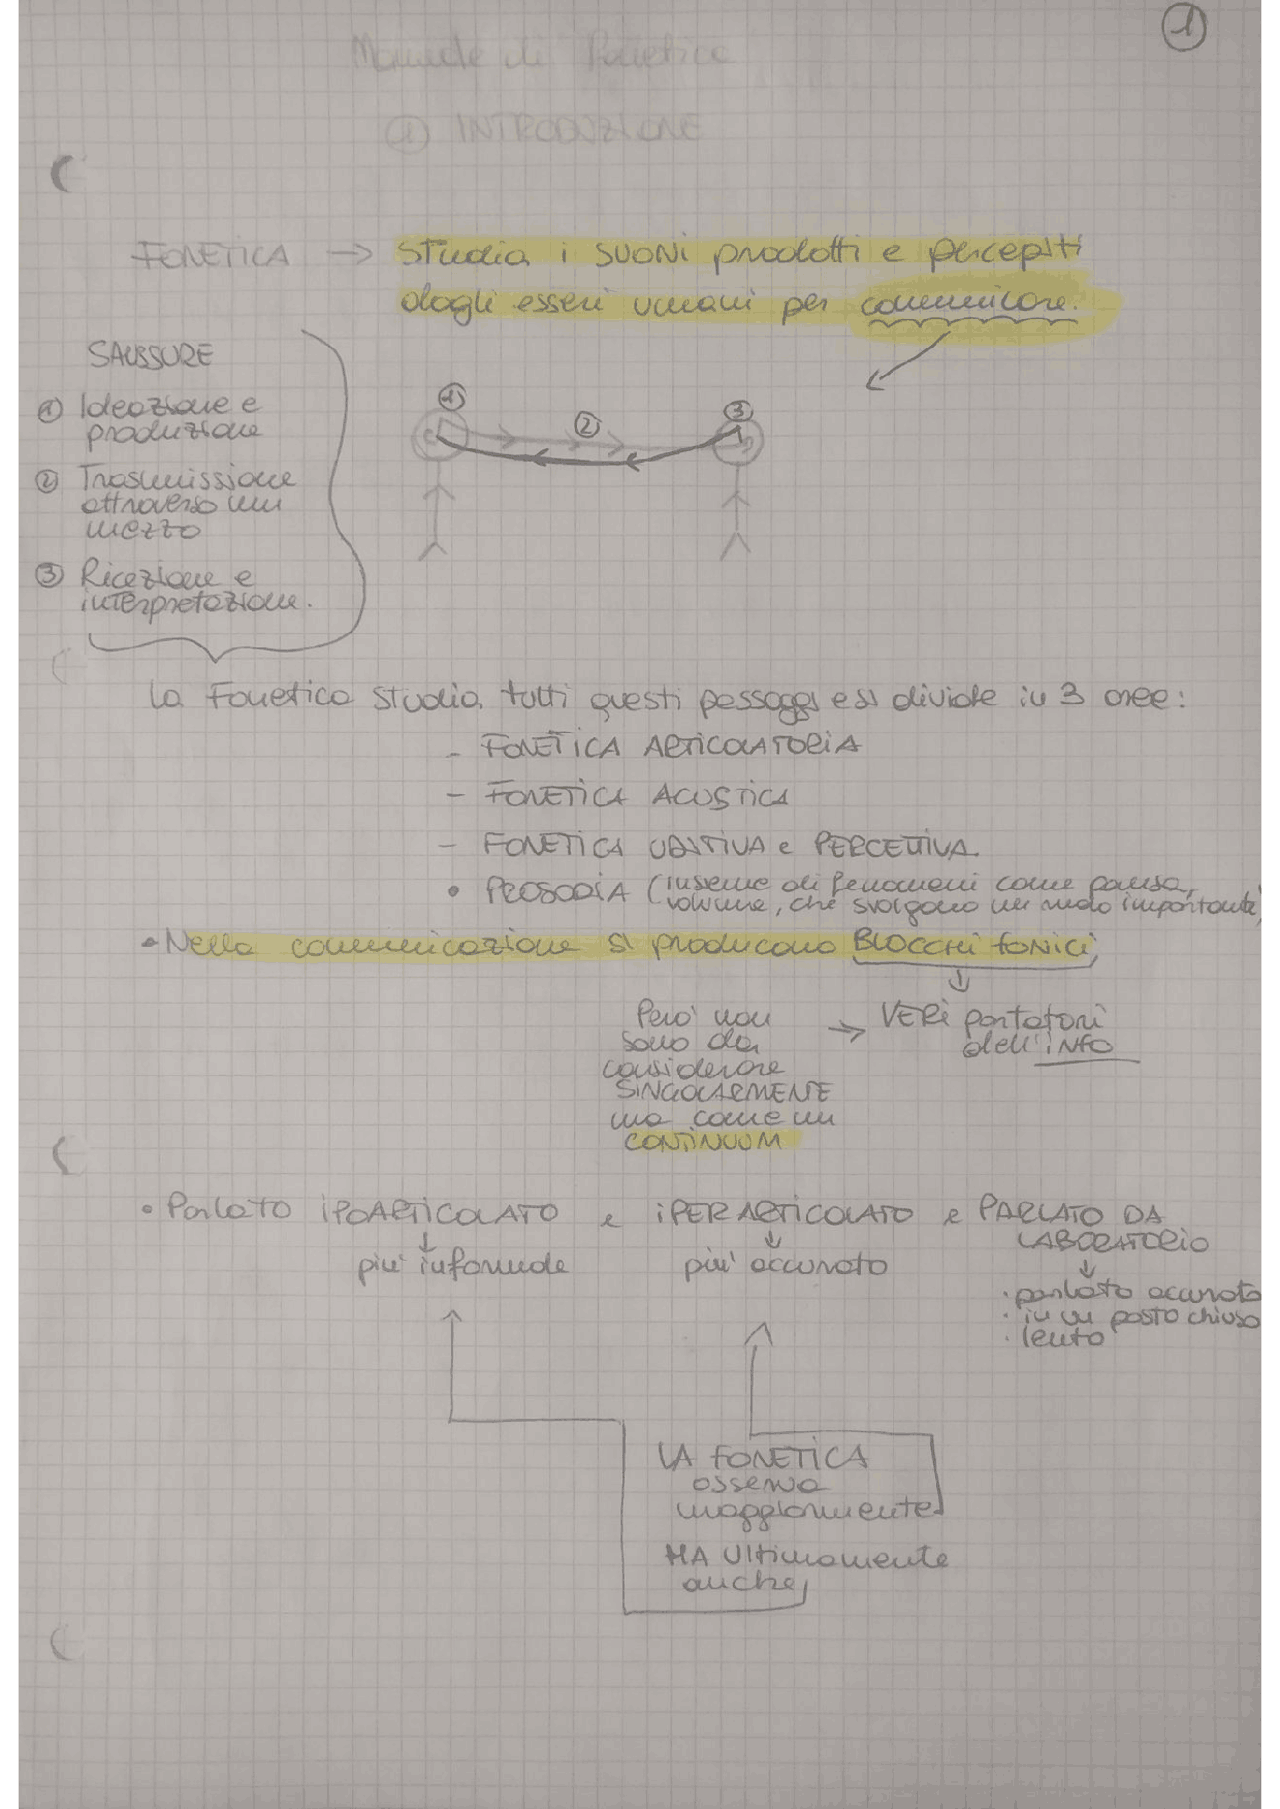 1
Manuale di Fonetica
① INTRODUZIONE
FONETICA → Studia i SUONI prodotti e percepiti
dagli esseri umani per comunicare.
SAUSSURE
① Ideazione e
produzione
② Trasmissione
attraverso un
mezzo
③ Ricezione e
interpretazione.
① ② ③
La Fonetica studia tutti questi passaggi e si divide in 3 aree:
- FONETICA ARTICOLATORIA
- FONETICA ACUSTICA
- FONETICA UDITIVA e PERCETTIVA.
• PROSODIA (insieme di fenomeni come pausa,
volume, che svolgono un ruolo importante)
• Nella comunicazione si producono BLOCCHI FONICI,
Però non
sono da
considerare
SINGOLARMENTE
ma come un
CONTINUUM
→ VERI portatori
dell'INFO
• Parlato IPOARTICOLATO e IPERARTICOLATO e PARLATO DA
LABORATORIO
più informale
più accurato
· parlato accurato
· in un posto chiuso
· lento
LA FONETICA
osserva
maggiormente
MA Ultimamente
anche